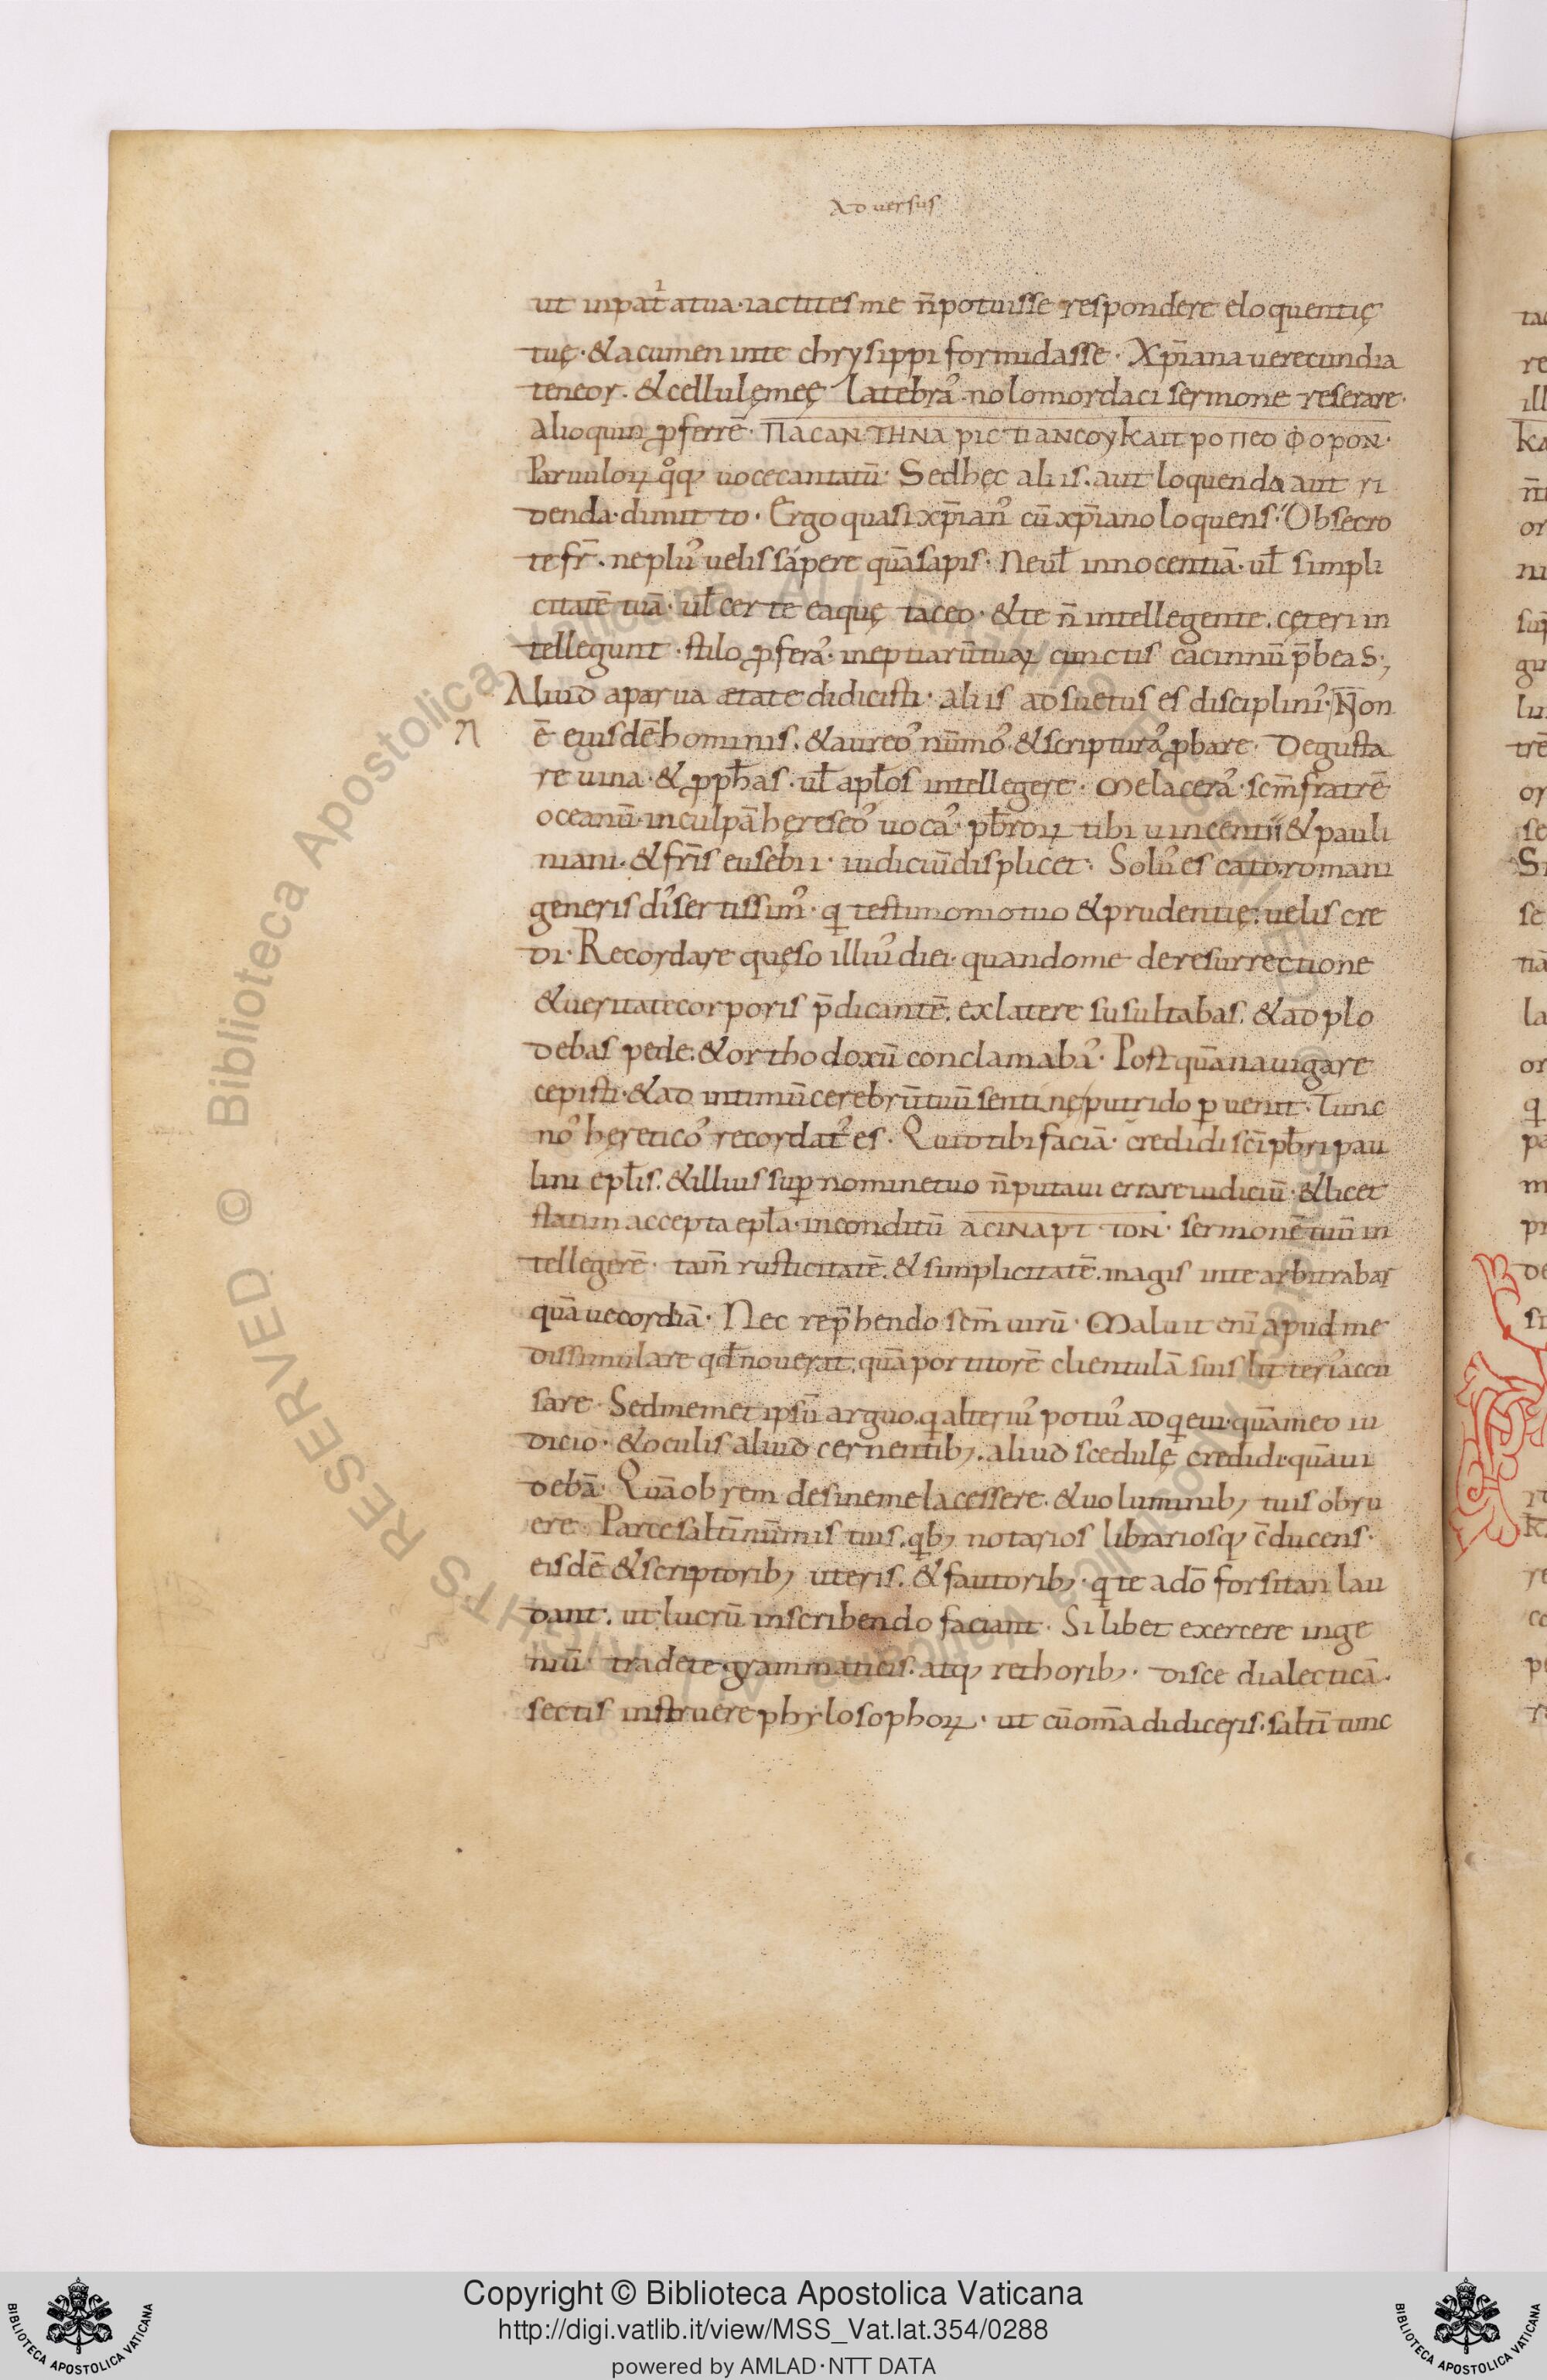 Aduersus
ut inpat̄ atua·iactites me n̄potuisse respondere eloquentię
tuę·&acumen inte chrysippi formidasse· Xp̄iana uerecundia
teneor·&cellulęmeę latebraꝰ nolomordaci sermone reserare·
Alioquin ꝓferrē· ΠACAN·THNA PICTIANCOYKAITPOΠEOΦOPON·
Paruuloꝝ qͦꝙ uocecantatū· Sedhęc aliis·aut loquenda aut ri
denda·dimitto· Ergo quasi xp̄ianꝰ cū xp̄iano loquens· Obsecro
te fr̄·ne plꝰ uelis sápere quāsapis· Neul̄ innocentiā·ul̄ simpli
citatē tuā·ul̄ certe eaquę taceo·&te n̄ intellegente·cęteri in
tellegunt·stilo ꝓferaꝰ·ineptiarūtuaꝝ cunctis cacinnū p̄beas;
Aliud aparua ætate didicisti·aliis adsuetus es disciplinıꝰ·Non
ē eiusdē hominis·&aureoꝰ nūmoꝰ&scripturaꝰꝓbare· Degusta
re uina·&ꝓpħas·ul̄ apłos intellegere· Melaceraꝰ·sc̄m fratrē
oceanū·inculpā hęreseoꝰ uocaꝰ·pb̄roꝝ tibi uincentii&pauli
niani·&fr̄is eusebii·iudiciūdisplicet· Solꝰ es cato·romani
generis diꝰsertissimꝰ·q̄ testimoniotuo &prudentię·uelis cre
di· Recordare quęso illiuꝰ diei·quandome deresurrectione
&ueritatecorporis p̄dicantē·exlatere susultabas·&adplo
debas pede·&orthodoxū conclamabaꝰ· Postquānauigare
cepisti·&ad intimūcerebrūtuū sentinęputrido ꝑuenit·Tunc
noꝰ hęreticoꝰ recordatꝰ es· Quidtibi faciā·credidi sc̄i pb̄ri pau
lini epłis·&illius suꝑ nominetuo n̄putaui errare iudiciū·&licet
statim accepta epła·inconditū ACINAPTTON·sermonē tuū in
tellegerē·tam̄ rusticitatē·&simplicitatē·magis inte arbitrabar
quā uecordiā· Nec rep̄hendo sc̄m uirū· Maluit eni apud me
dissimulare qd̄ nouerat·quā portitorē clientulā suis litteriꝰaccu
sare· Sedmemet ipsū arguo·q̄ alteriꝰ potiꝰ adq̄eui·quāmeo iu
dicio·&oculis aliud cernentib;·aliud scedulę credidi·quāui
debā· Quāobrem desineme lacessere·&uoluminib; tuis obru
ere· Parcesaltīnūmis tuis·q̄b; notarios librariosq; c̄ducens·
eisdē &scriptorib; uteris·&fautorib;·q̄ te adō forsitan lau
dant·ut lucrū inscribendo faciant· Si libet exercere inge
niū·tradete grammaticis·atq; rethorib;·Disce dialecticā·
sectis instruere phylosophoꝝ·ut cūom̄a didiceris·saltī tunc
Copyright © Biblioteca Apostolica Vaticana
http://digi.vatlib.it/view/MSS_Vat.lat.354/0288
powered by AMLAD·NTT DATA
BIBLIOTECA APOSTOLICA VATICANA
BIBLIOTECA APOSTOLICA VATICANA